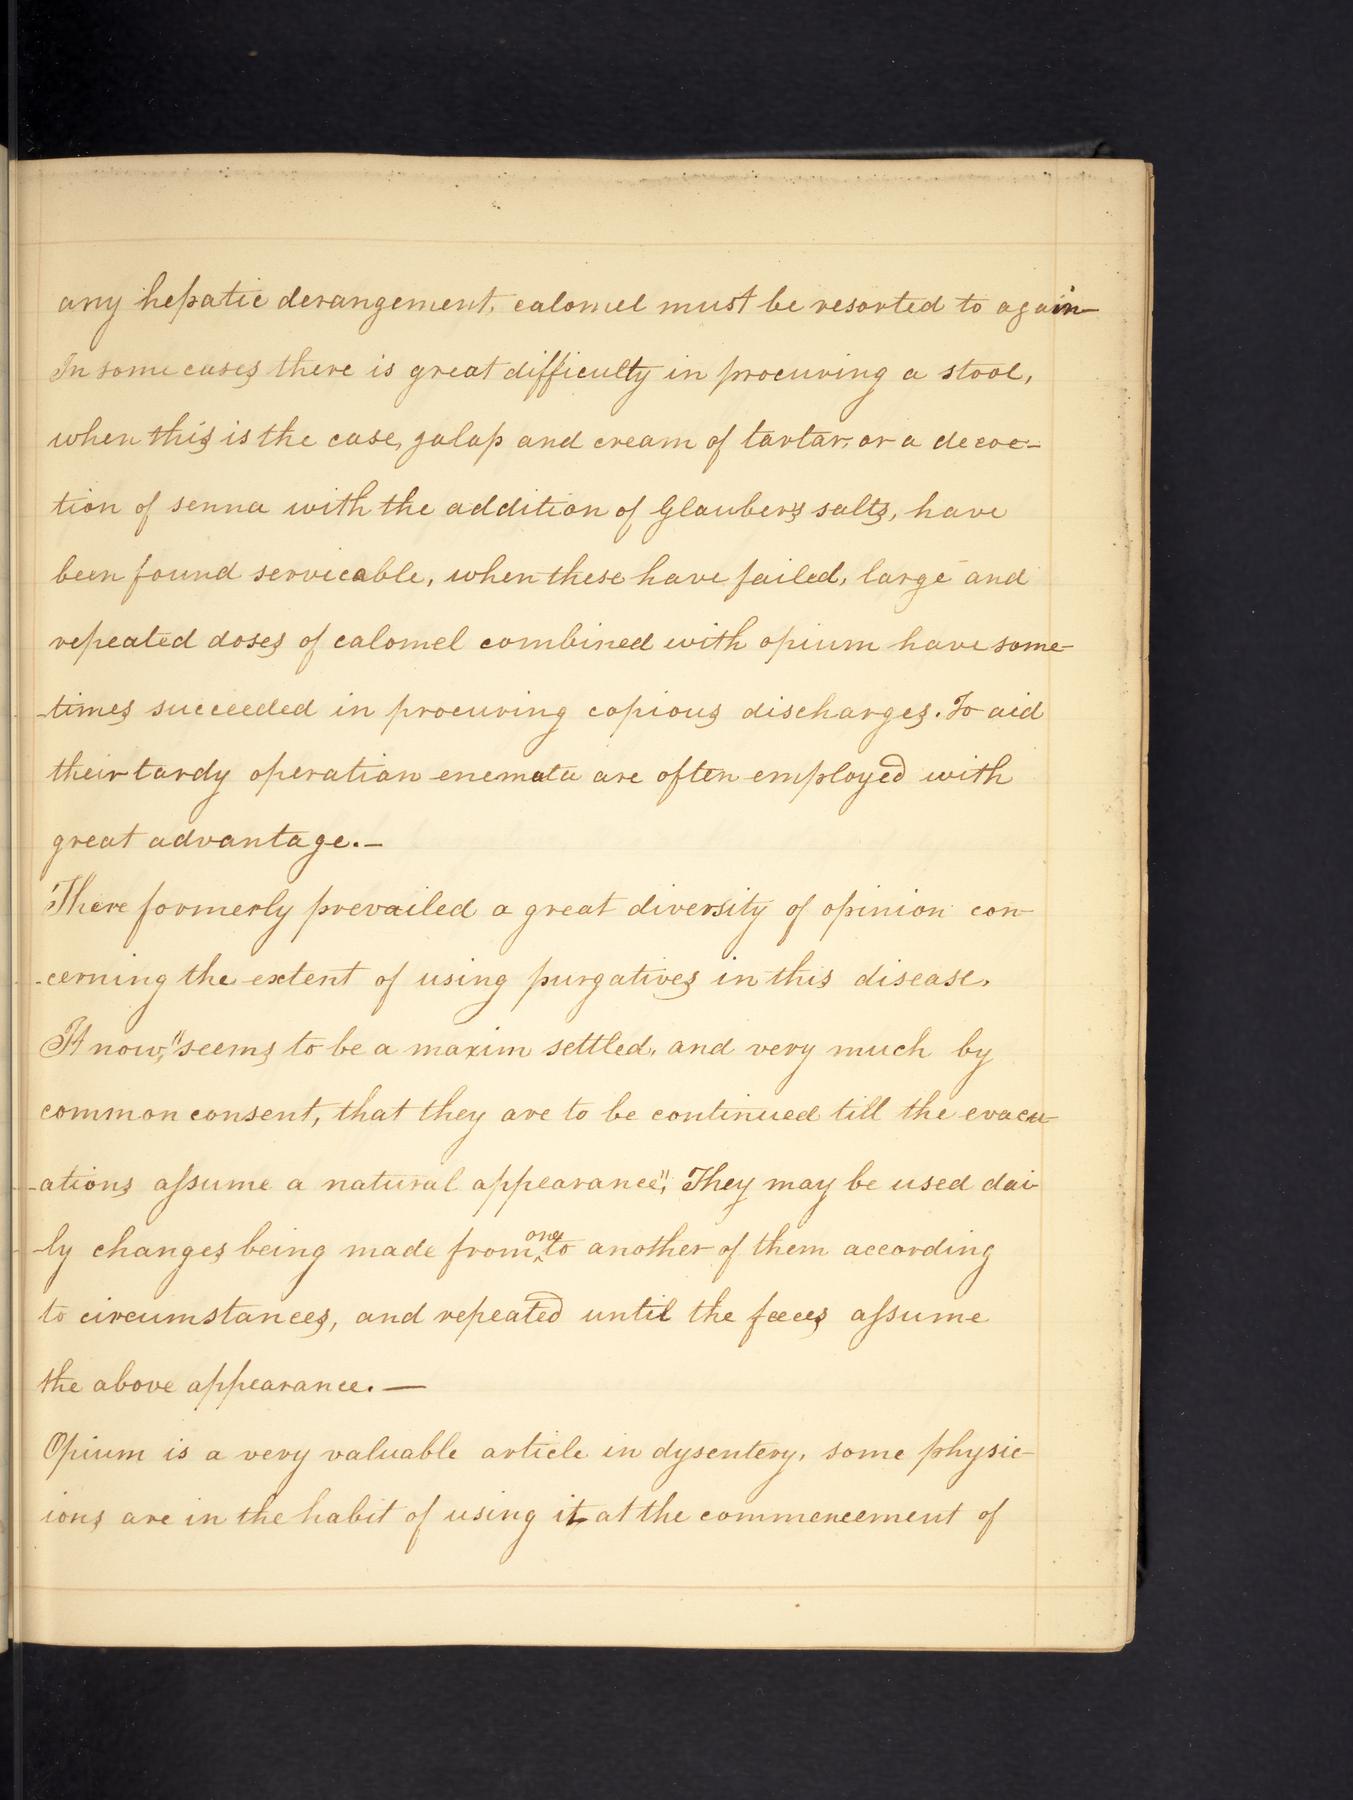 any hepatic derangement, calomel must be resorted to again
In some cases there is great difficulty in procuring a stool,
when this is the case, jalap and cream of tartar, or a decoc-
tion of senna with the addition of Glauber's salts, have
been found servicable, when these have failed, large and
repeated doses of calomel combined with opium have some-
-times succeeded in procuring copious discharges. To aid
their tardy operation enemata are often employed with
great advantage.—
There formerly prevailed a great diversity of opinion con-
-cerning the extent of using purgatives in this disease.
It now, "seems to be a maxim settled, and very much by
common consent, that they are to be continued till the evacu-
-ations assume a natural appearance", They may be used dai-
-ly changes being made from one to another of them according
to circumstances, and repeated until the fæces assume
the above appearance.—
Opium is a very valuable article in dysentery, some physic-
ions are in the habit of using it at the commencement of